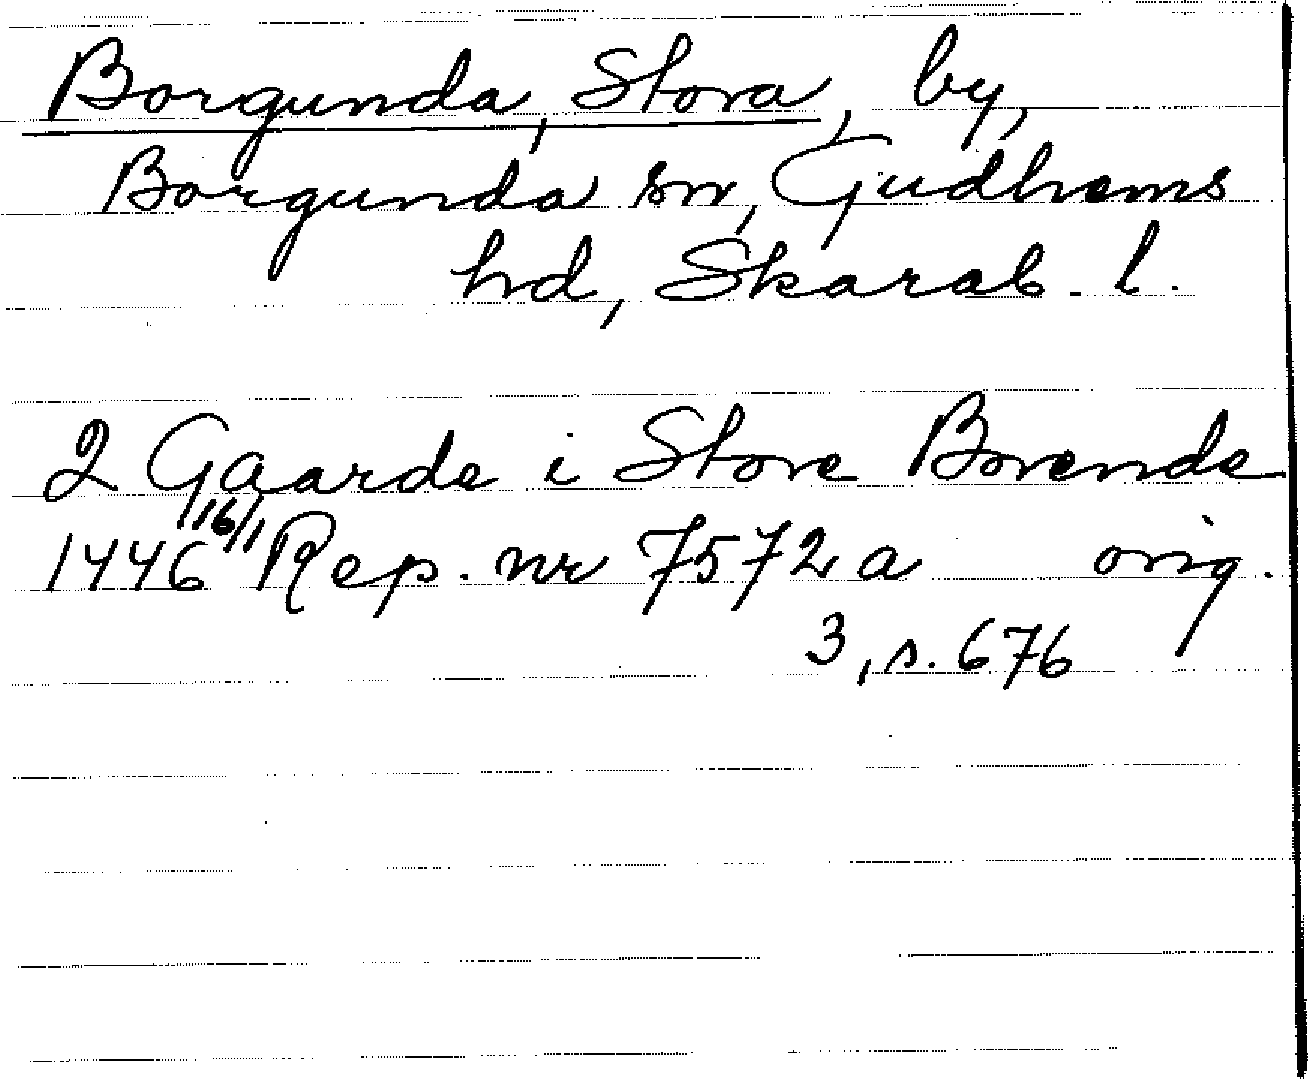 Borgunda, Stora, by,
Borgunda sn, Gudhems
hd, Skarab. l.
2 Gaarde i Store Borende
1446 16/1 Rep. nr 7572 a orig.
3, s. 676